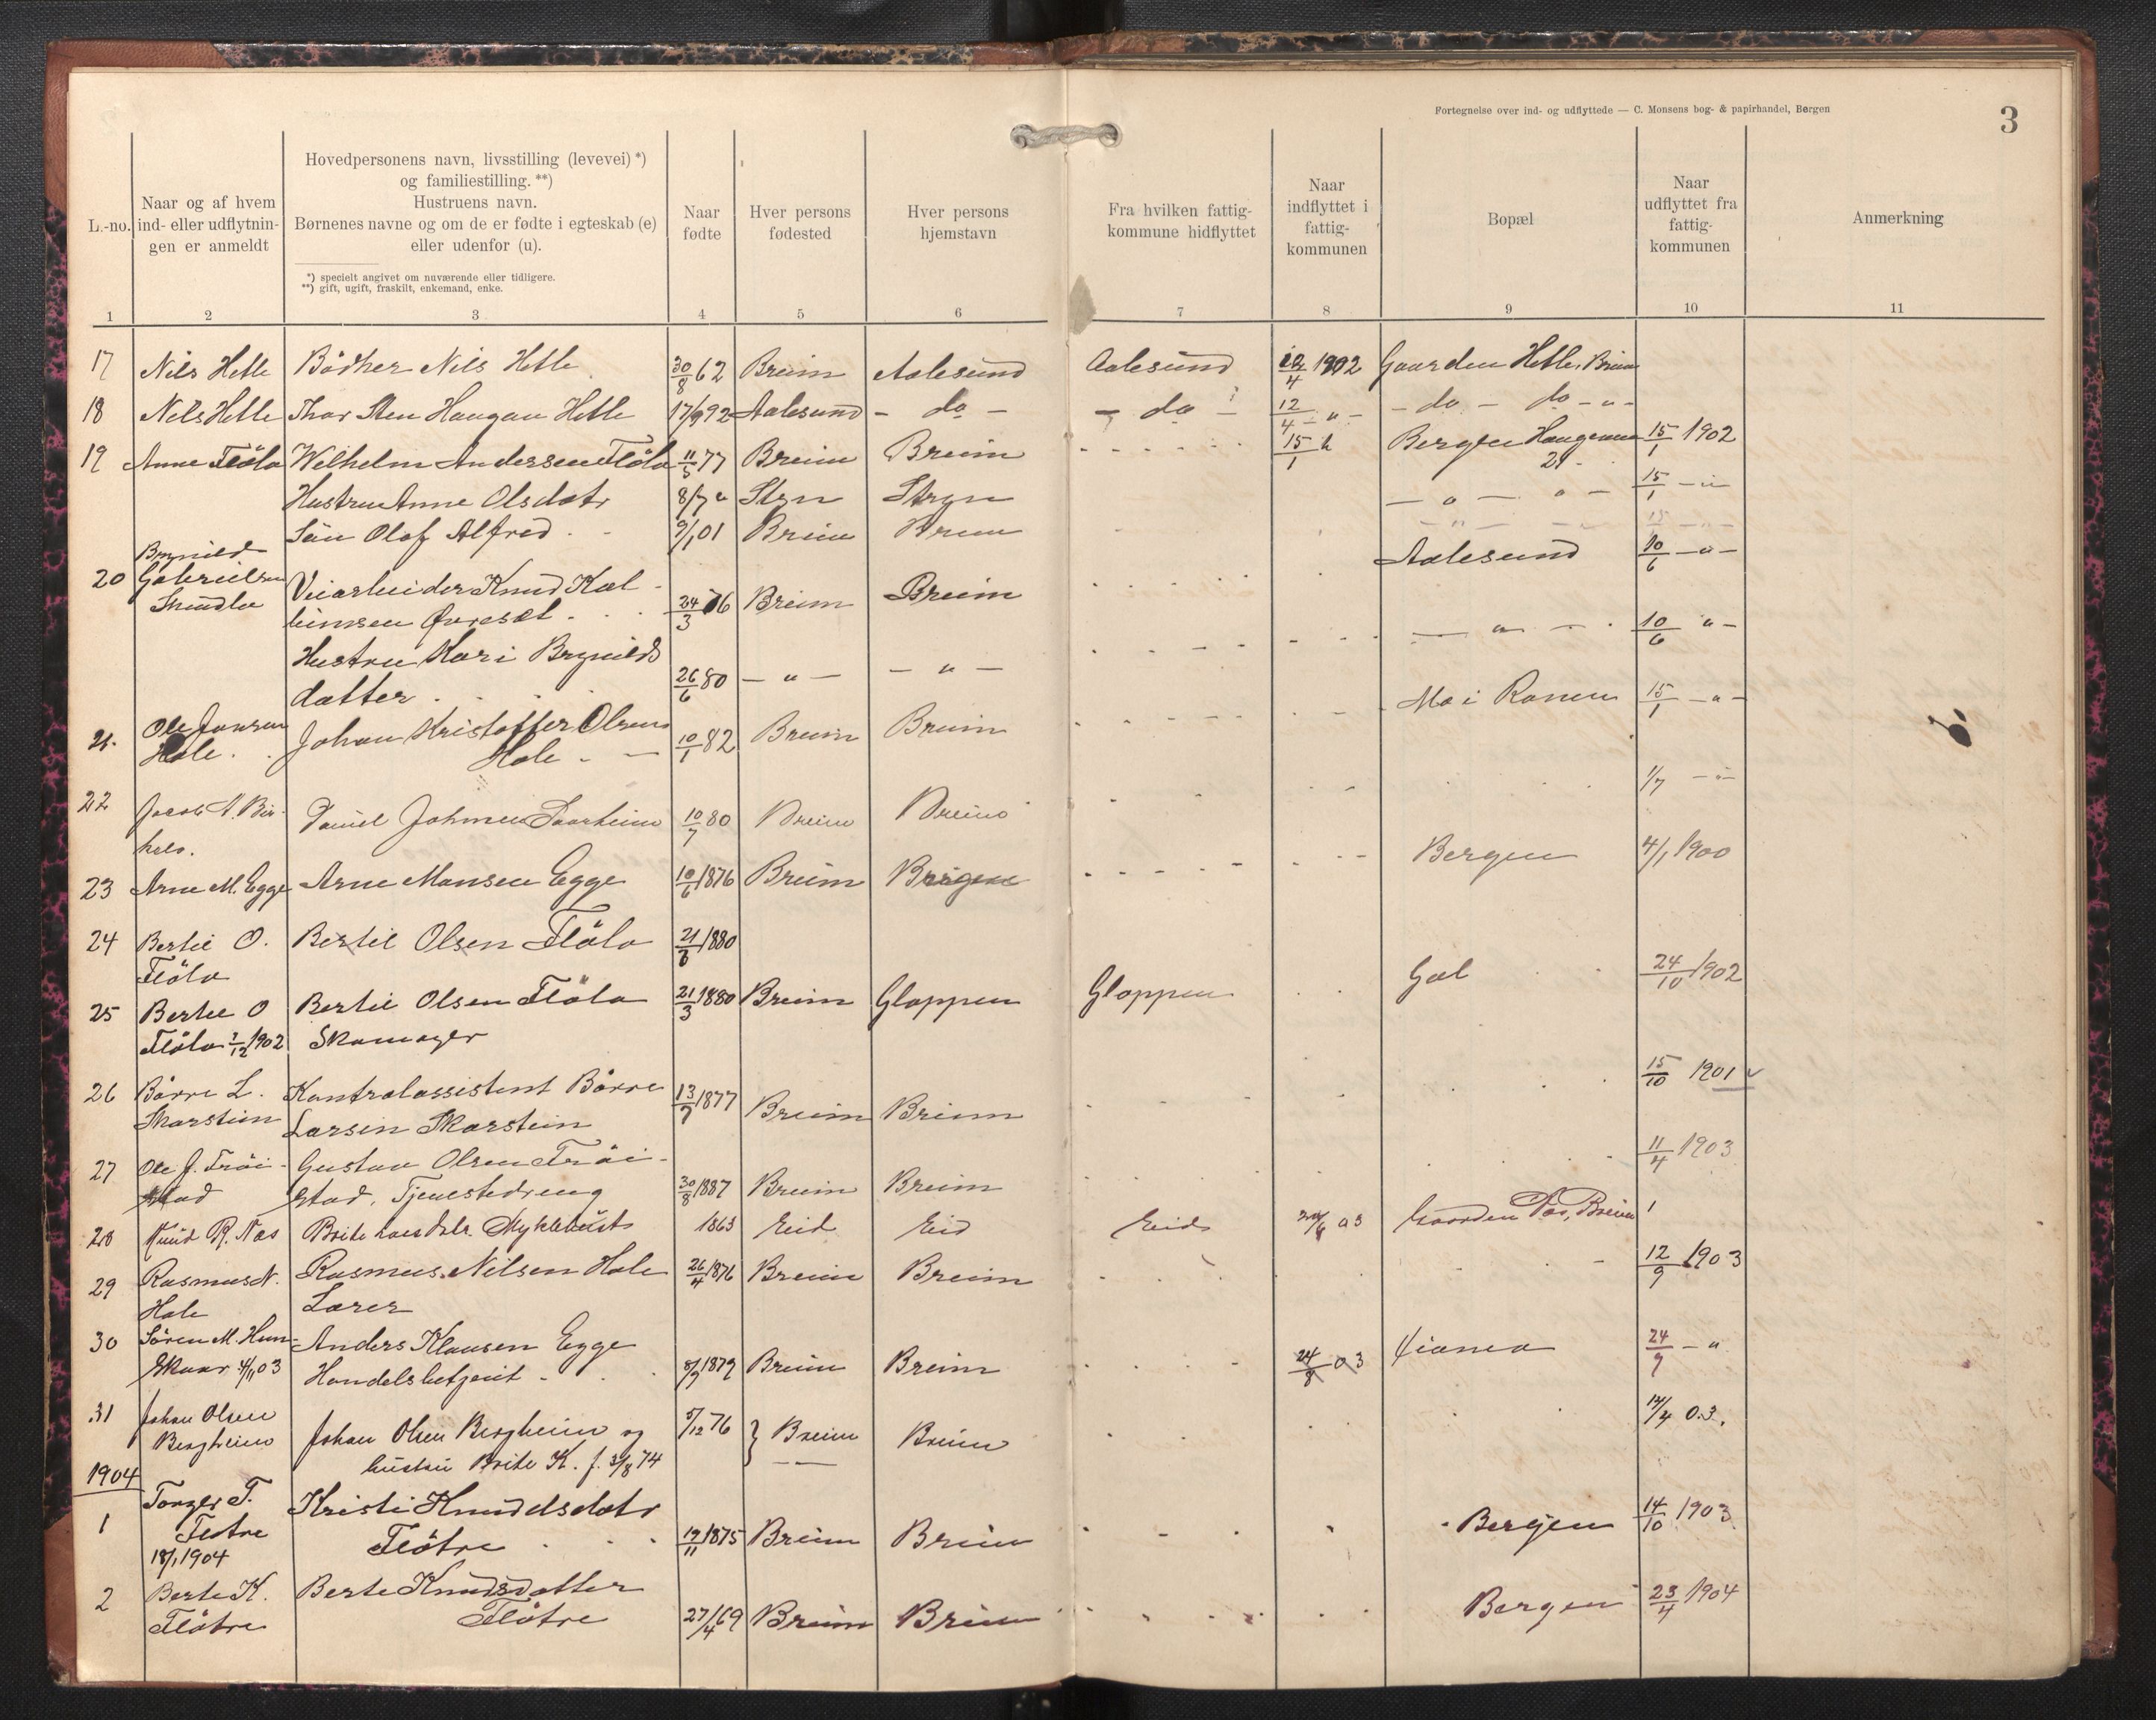 Fortegnelse over ind- og udflyttede — C. Monsens bog- & papirhandel, Bergen
3
L.-no.
Naar og af hvem
ind- eller udflytnin-
gen er anmeldt
Hovedpersonens navn, livsstilling (levevei) *)
og familiestilling. **)
Hustruens navn.
Børnenes navne og om de er fødte i egteskab (e)
eller udenfor (u).
*) specielt angivet om nuværende eller tidligere.
**) gift, ugift, fraskilt, enkemand, enke.
Naar
fødte
Hver persons
fødested
Hver persons
hjemstavn
Fra hvilken fattig-
kommune hidflyttet
Naar
indflyttet i
fattig-
kommunen
Bopæl
Naar
udflyttet fra
fattig-
kommunen
Anmerkning
1 2 3 4 5 6 7 8 9 10 11
17 Nils Hetle Bödker Nils Hetle 30/8 62 Breim Aalesund Aalesund 12/4 1902 Gaarden Hetle, Breim
18 Nels Hetle Thor Sten Haugan Hetle 17/9 92 Aalesund - do - - do - 12/4 - " - - do - do - " -
19 Anne Flöla Wilhelm Andersen Flöla 11/5 77 Breim Breim 15/1 Bergen 15/1 1902
21
Hustru Anne Olsdatr 8/7 " Stryn Stryn — " — " — 15/1 — " —
Sön Olaf Alfred 9/1 01 Breim Breim — " — — " 15/1 — " —
Brynild
20 Gabrielsen
Veiarbeider Knud Kol- Aalesund 10/6 — " —
bensen Øvreset 24/3 76 Breim Breim
Hustru Kari Brynilds — " — 10/6 " —
datter 26/6 80 — " — — " —
21. Ole Jonsen Johan Kristoffer Olsen 10/1 82 Breim Breim Mo i Ranen 15/1 — " —
Hole Hole
22 Jacob A. Daniel Johnsen 10/7 80 Breim Breim 1/7 — " —
23 Arne M. Egge Arne Monsen Egge 10/6 1876 Breim Bergen 4/1 1900
24 Bertil O. Bertil Olsen Flöla 21/3 1880
Flöla
25 Bertil O Bertil Olsen Flöla 21/3 1880 Breim Gloppen Gloppen Gol 24/10 1902
Flöla 2/12 1902 Skomager
26 Börre L. Kontrolassistent Börre 13/7 1877 Breim Breim 15/10 1901
Skarstein Larsen Skarstein
27 Ole J. Tröi- Gustav Olsen Tröi-
stad stad, Tjenestedreng 30/8 1887 Breim Breim 11/4 1903
28 Knud R. Næs Brite Myklebust 1863 Eid Eid Eid 03 Gaarden Næs, Breim
29 Rasmus N. Rasmus Nilsen Hole 26/4 1876 Breim Breim 12/9 1903
Hole Lærer
30 Sören M. Hun- Anders Klausen Egge
skaar 4/11 03 Handelsbetjent 8/9 1879 Breim Breim 24/8 03 24/9 — "
31 Johan Olsen Johan Olsen Bergheim og 5/12 76 Breim Breim 14/4 03.
Bergheim hustru Brite K. f. 3/8 74
1904
1 Torger T. Kristi Knudsdatr
Flotre Flötre 19/11 1875 Breim Breim Bergen 14/10 1903
18/1 1904
2 Berte K. Berte Knudsdatter
Flötre Flötre 27/4 69 Breim Breim Bergen 23/4 1904